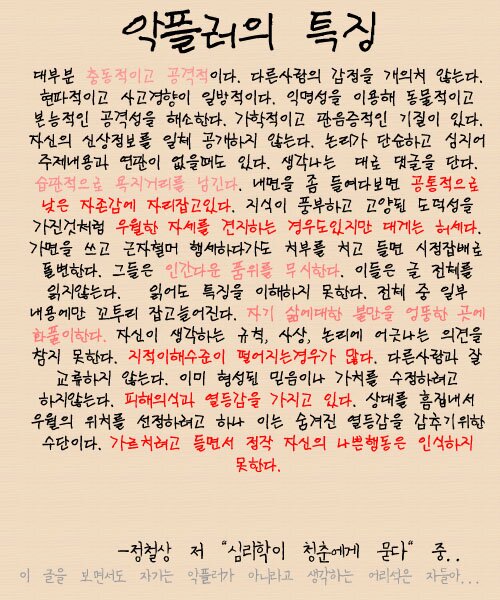 악플러의 특징
대부분 충동적이고 공격적이다. 다른사람의 감정을 개의치 않는다.
현파적이고 사고경향이 일방적이다. 익명성을 이용해 동물적이고
본능적인 공격성을 해소한다. 가학적이고 관음증적인 기질이 있다.
자신의 신상정보를 일체 공개하지 않는다. 논리가 단순하고 심지어
주제내용과 연관이 없을때도 있다. 생각나는 대로 댓글을 단다.
습관적으로 욕지거리를 남긴다. 내면을 좀 들여다보면 공통적으로
낮은 자존감에 자리잡고있다. 지식이 풍부하고 고양된 도덕성을
가진것처럼 우월한 자세를 견지하는 경우도있지만 대게는 허세다.
가면을 쓰고 근자헐머 행세하다가도 치부를 치고 들면 시정잡배로
돌변한다. 그들은 인간다운 품위를 무시한다. 이들은 글 전체를
읽지않는다. 읽어도 특징을 이해하지 못한다. 전체 중 일부
내용에만 꼬투리 잡고늘어진다. 자기 삶에대한 불만을 엉뚱한 곳에
화풀이한다. 자신이 생각하는 규칙, 사상, 논리에 어긋나는 의견을
참지 못한다. 지적이해수준이 떨어지는경우가 많다. 다른사람과 잘
교류하지 않는다. 이미 형성된 믿음이나 가치를 수정하려고
하지않는다. 피해의식과 열등감을 가지고 있다. 상대를 흠집내서
우월의 위치를 선점하려고 하나 이는 숨겨진 열등감을 감추기위한
수단이다. 가르쳐려고 들면서 정작 자신의 나쁜행동은 인식하지
못한다.
-정철상 저 "심리학이 청춘에게 묻다" 중..
이 글을 보면서도 자기는 악플러가 아니라고 생각하는 어리석은 자들아...